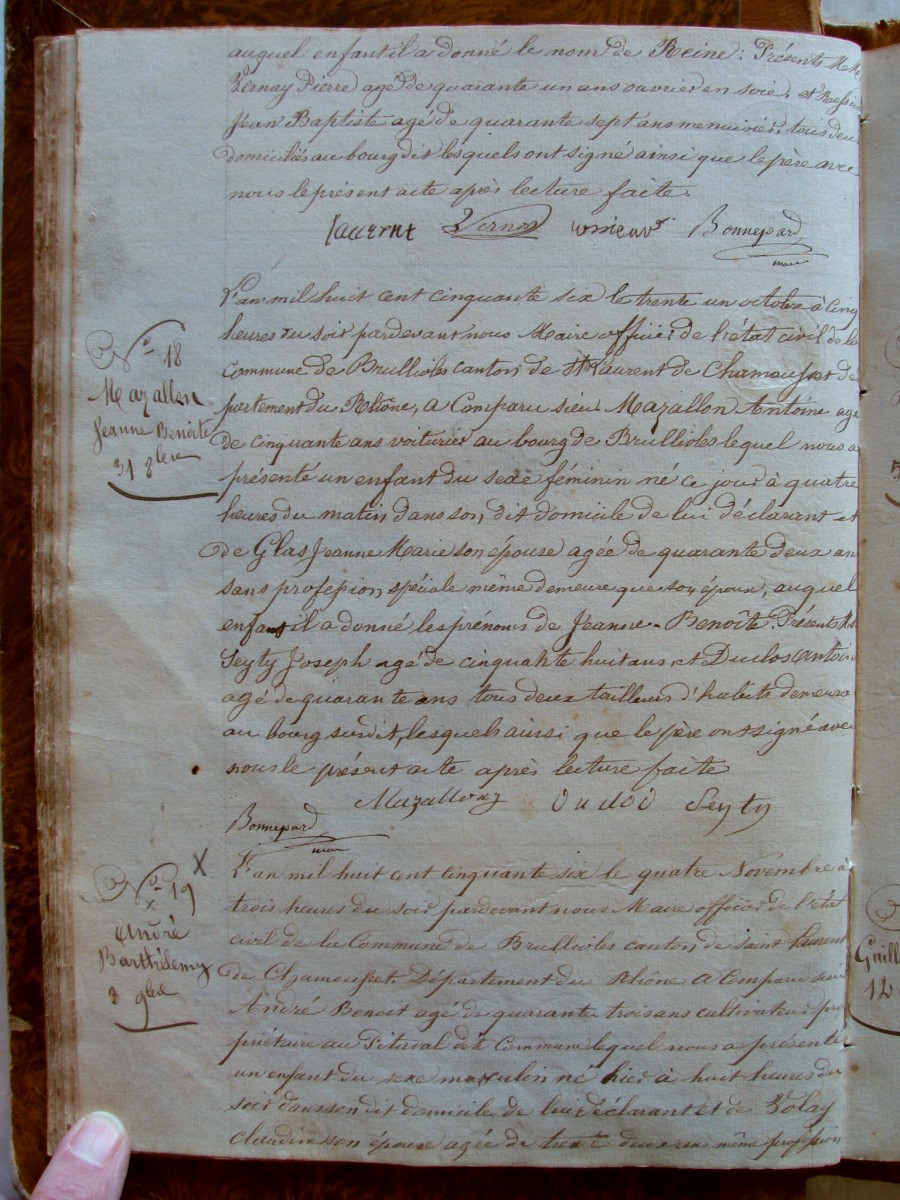 auquel enfant il a donné le nom de Reine. Présents
Vernay Pierre agé de quarante un ans ouvrier en soie, et
Jean Baptiste agé de quarante sept ans menuisier, tous deux
domiciliés au bourg dit lesquels ont signé ainsi que le père avec
nous le présent acte après lecture faite.
laurent Vernay Bonnepard
maire
L'an mil huit cent cinquante six le trente un octobre à cinq
heures du soir pardevant nous Maire officier de l'état civil de la
Commune de Brullioles canton de St Laurent de Chamousset dé
partement du Rhône, a Comparu sieur Mazallon Antoine agé
de cinquante ans voiturier au bourg de Brullioles lequel nous a
présenté un enfant du sexe féminin né ce jour à quatre
heures du matin dans son, dit domicile de lui déclarant et
de Glas Jeanne Marie son épouse agée de quarante deux an
sans profession spéciale même demeure que son époux, auquel
enfant il a donné les prénoms de Jeanne-Benoîte. Présents
Seyty Joseph agé de cinquante huit ans, et Duclos Antoin
agé de quarante ans tous deux tailleurs d'habits demeura
au bourg susdit, lesquels ainsi que le père ont signé avec
nous le présent acte après lecture faite
N° 18
Mazallon
Jeanne Benoîte
31 8bre
Mazallon Seyty
Bonnepard
maire
L'an mil huit cent cinquante six le quatre Novembre à
trois heures du soir pardevant nous Maire officier de l'état
civil de la Commune de Brullioles canton de saint Laurent
de Chamousset. Département du Rhône a Comparu sieur
André Benoit agé de quarante trois ans cultivateur pro
priétaire au dite Commune lequel nous a présenté
un enfant du sexe masculin né hier à huit heures du
soir dans son dit domicile de lui déclarant et de Volay
Claudine son épouse agée de trente deux ans même profession
X
N° 19
x
André
Barthélemy
3 9bre
Guill
12